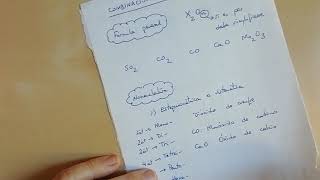 COMBINACIO
Fórmula general
X₂O
casi es par
debe simplificarse
SO₂ CO₂ CO CaO Mn₂O₃
Nomenclatura
1) Estequiométrica o sistemática
1at → Mono- Dióxido de azufre
2at → Di- CO: Monóxido de carbono
3at → Tri- CaO Óxido de calcio
4at → Tetra-
Penta-
Hexa-